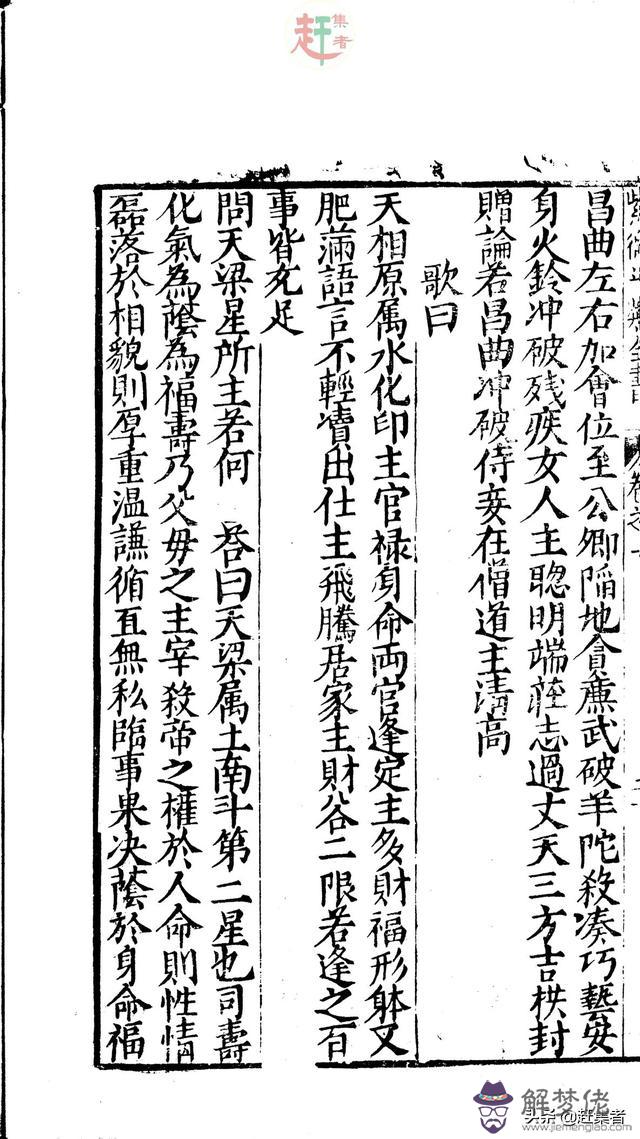 赶集者
紫微斗數全書 卷之一
昌曲左右加會位至公卿陷地貪廉武破羊陀殺凑巧藝安
身火鈴冲破残疾女人主聰明端莊志過丈夫三方吉拱封
贈論若昌曲冲破侍妾在僧道主清高
歌曰
天相原属水化印主官禄身命両宮逢定主多財福形躰又
肥滿語言不輕凟出仕主飛騰居家主財谷二限若逢之百
事皆充足
問天梁星所主若何 荅曰天梁属土南斗第二星也司壽
化氣為蔭為福壽乃父母之主宰殺帝之權於人命則性情
磊落於相貌則厚重温謙循直無私臨事果决蔭於身命福
解梦佬
www.jiemenglao.com
头条@赶集者